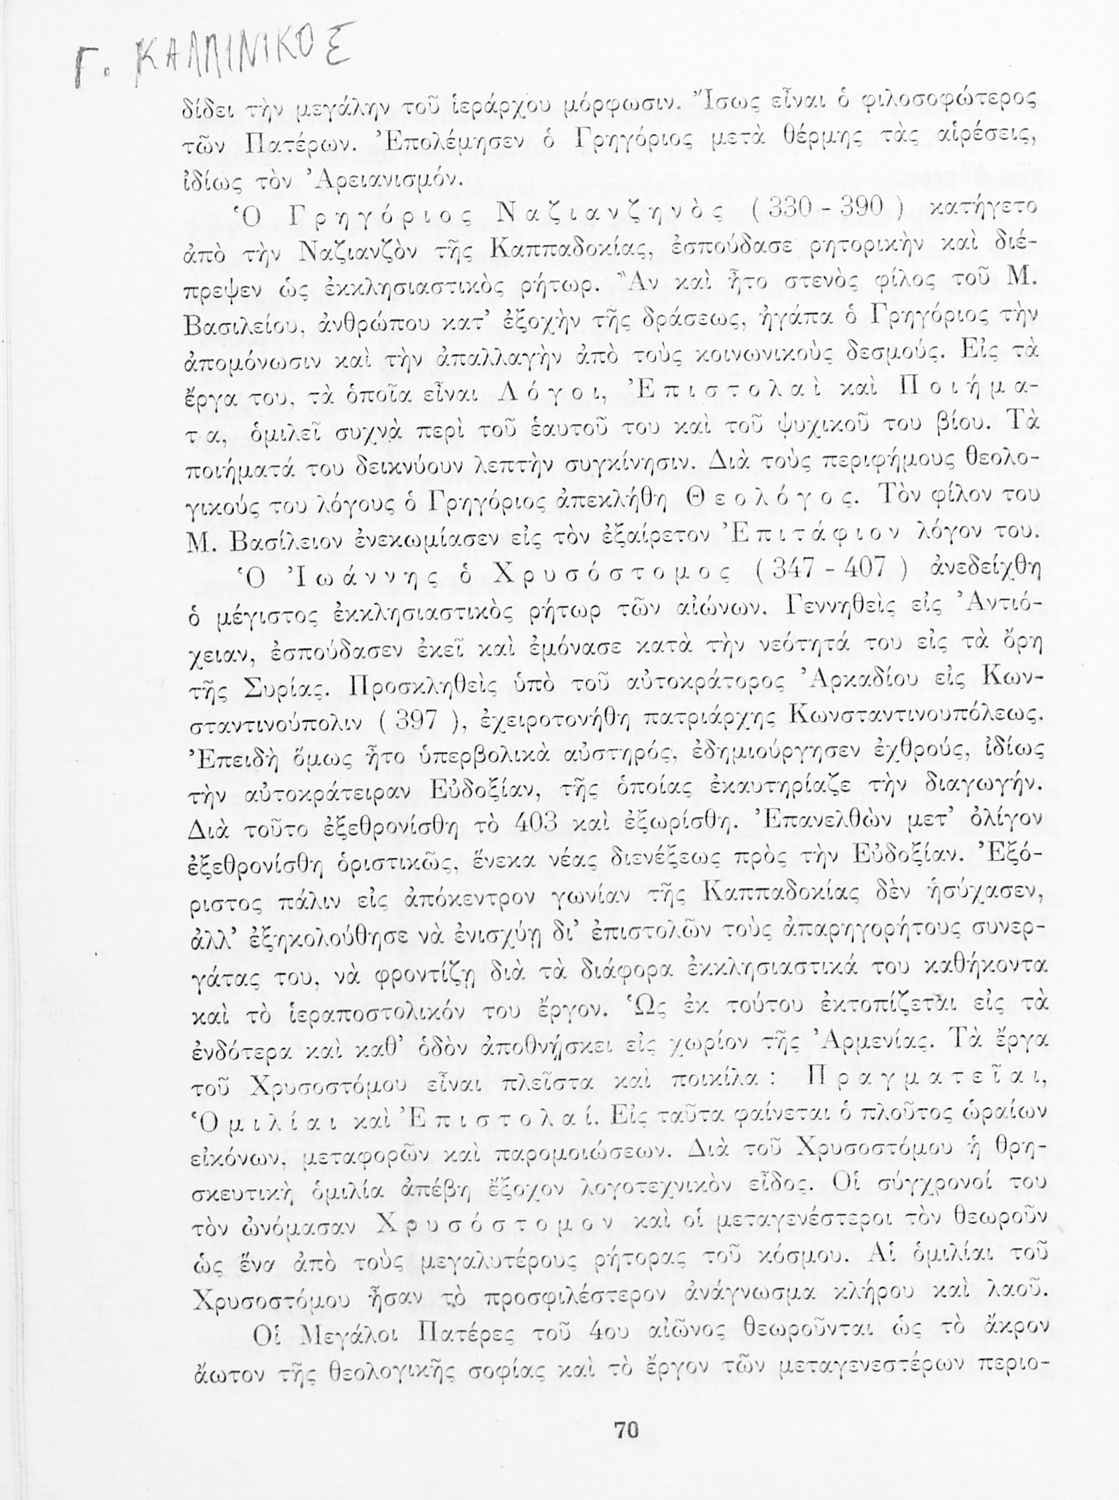 Γ. ΚΑΛΛΙΝΙΚΟΣ
δίδει τὴν μεγάλην τοῦ ἱεράρχου μόρφωσιν. Ἴσως εἶναι ὁ φιλοσοφώτερος
τῶν Πατέρων. Ἐπολέμησεν ὁ Γρηγόριος μετὰ θέρμης τὰς αἱρέσεις,
ἰδίως τὸν Ἀρειανισμόν.
Ὁ Γρηγόριος Ναζιανζηνὸς (330 - 390) κατήγετο
ἀπὸ τὴν Ναζιανζὸν τῆς Καππαδοκίας, ἐσπούδασε ρητορικὴν καὶ διέ-
πρεψεν ὡς ἐκκλησιαστικὸς ρήτωρ. Ἂν καὶ ἦτο στενὸς φίλος τοῦ Μ.
Βασιλείου, ἀνθρώπου κατ’ ἐξοχὴν τῆς δράσεως, ἠγάπα ὁ Γρηγόριος τὴν
ἀπομόνωσιν καὶ τὴν ἀπαλλαγὴν ἀπὸ τοὺς κοινωνικοὺς δεσμούς. Εἰς τὰ
ἔργα του, τὰ ὁποῖα εἶναι Λόγοι, Ἐπιστολαὶ καὶ Ποιήμα-
τα, ὁμιλεῖ συχνὰ περὶ τοῦ ἑαυτοῦ του καὶ τοῦ ψυχικοῦ του βίου. Τὰ
ποιήματά του δεικνύουν λεπτὴν συγκίνησιν. Διὰ τοὺς περιφήμους θεολο-
γικούς του λόγους ὁ Γρηγόριος ἀπεκλήθη Θεολόγος. Τὸν φίλον του
Μ. Βασίλειον ἐνεκωμίασεν εἰς τὸν ἐξαίρετον Ἐπιτάφιον λόγον του.
Ὁ Ἰωάννης ὁ Χρυσόστομος (347 - 407) ἀνεδείχθη
ὁ μέγιστος ἐκκλησιαστικὸς ρήτωρ τῶν αἰώνων. Γεννηθεὶς εἰς Ἀντιό-
χειαν, ἐσπούδασεν ἐκεῖ καὶ ἐμόνασε κατὰ τὴν νεότητά του εἰς τὰ ὄρη
τῆς Συρίας. Προσκληθεὶς ὑπὸ τοῦ αὐτοκράτορος Ἀρκαδίου εἰς Κων-
σταντινούπολιν (397), ἐχειροτονήθη πατριάρχης Κωνσταντινουπόλεως.
Ἐπειδὴ ὅμως ἦτο ὑπερβολικὰ αὐστηρός, ἐδημιούργησεν ἐχθρούς, ἰδίως
τὴν αὐτοκράτειραν Εὐδοξίαν, τῆς ὁποίας ἐκαυτηρίαζε τὴν διαγωγήν.
Διὰ τοῦτο ἐξεθρονίσθη τὸ 403 καὶ ἐξωρίσθη. Ἐπανελθὼν μετ’ ὀλίγον
ἐξεθρονίσθη ὁριστικῶς, ἕνεκα νέας διενέξεως πρὸς τὴν Εὐδοξίαν. Ἐξό-
ριστος πάλιν εἰς ἀπόκεντρον γωνίαν τῆς Καππαδοκίας δὲν ἡσύχασεν,
ἀλλ’ ἐξηκολούθησε νὰ ἐνισχύῃ δι’ ἐπιστολῶν τοὺς ἀπαρηγορήτους συνερ-
γάτας του, νὰ φροντίζῃ διὰ τὰ διάφορα ἐκκλησιαστικά του καθήκοντα
καὶ τὸ ἱεραποστολικόν του ἔργον. Ὡς ἐκ τούτου ἐκτοπίζεται εἰς τὰ
ἐνδότερα καὶ καθ’ ὁδὸν ἀποθνήσκει εἰς χωρίον τῆς Ἀρμενίας. Τὰ ἔργα
τοῦ Χρυσοστόμου εἶναι πλεῖστα καὶ ποικίλα : Πραγματεῖαι,
Ὁμιλίαι καὶ Ἐπιστολαί. Εἰς ταῦτα φαίνεται ὁ πλοῦτος ὡραίων
εἰκόνων, μεταφορῶν καὶ παρομοιώσεων. Διὰ τοῦ Χρυσοστόμου ἡ θρη-
σκευτικὴ ὁμιλία ἀπέβη ἔξοχον λογοτεχνικὸν εἶδος. Οἱ σύγχρονοί του
τὸν ὠνόμασαν Χρυσόστομον καὶ οἱ μεταγενέστεροι τὸν θεωροῦν
ὡς ἕνα ἀπὸ τοὺς μεγαλυτέρους ρήτορας τοῦ κόσμου. Αἱ ὁμιλίαι τοῦ
Χρυσοστόμου ἦσαν τὸ προσφιλέστερον ἀνάγνωσμα κλήρου καὶ λαοῦ.
Οἱ Μεγάλοι Πατέρες τοῦ 4ου αἰῶνος θεωροῦνται ὡς τὸ ἄκρον
ἄωτον τῆς θεολογικῆς σοφίας καὶ τὸ ἔργον τῶν μεταγενεστέρων περιο-
70